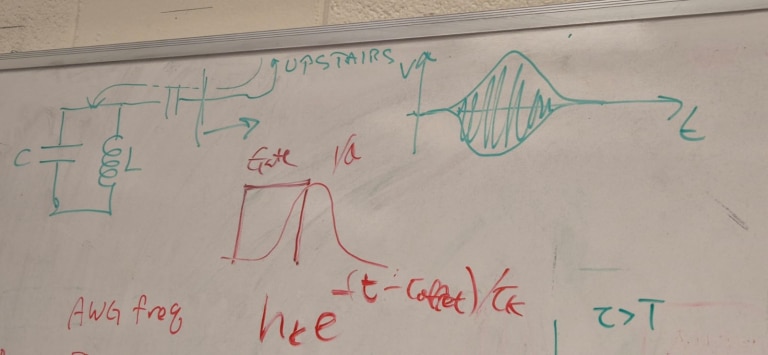 UPSTAIRS
Va
C
L
t
Gate Va
AWG freq
h_t e^-(t - τ_offset)/τ_t
τ>T